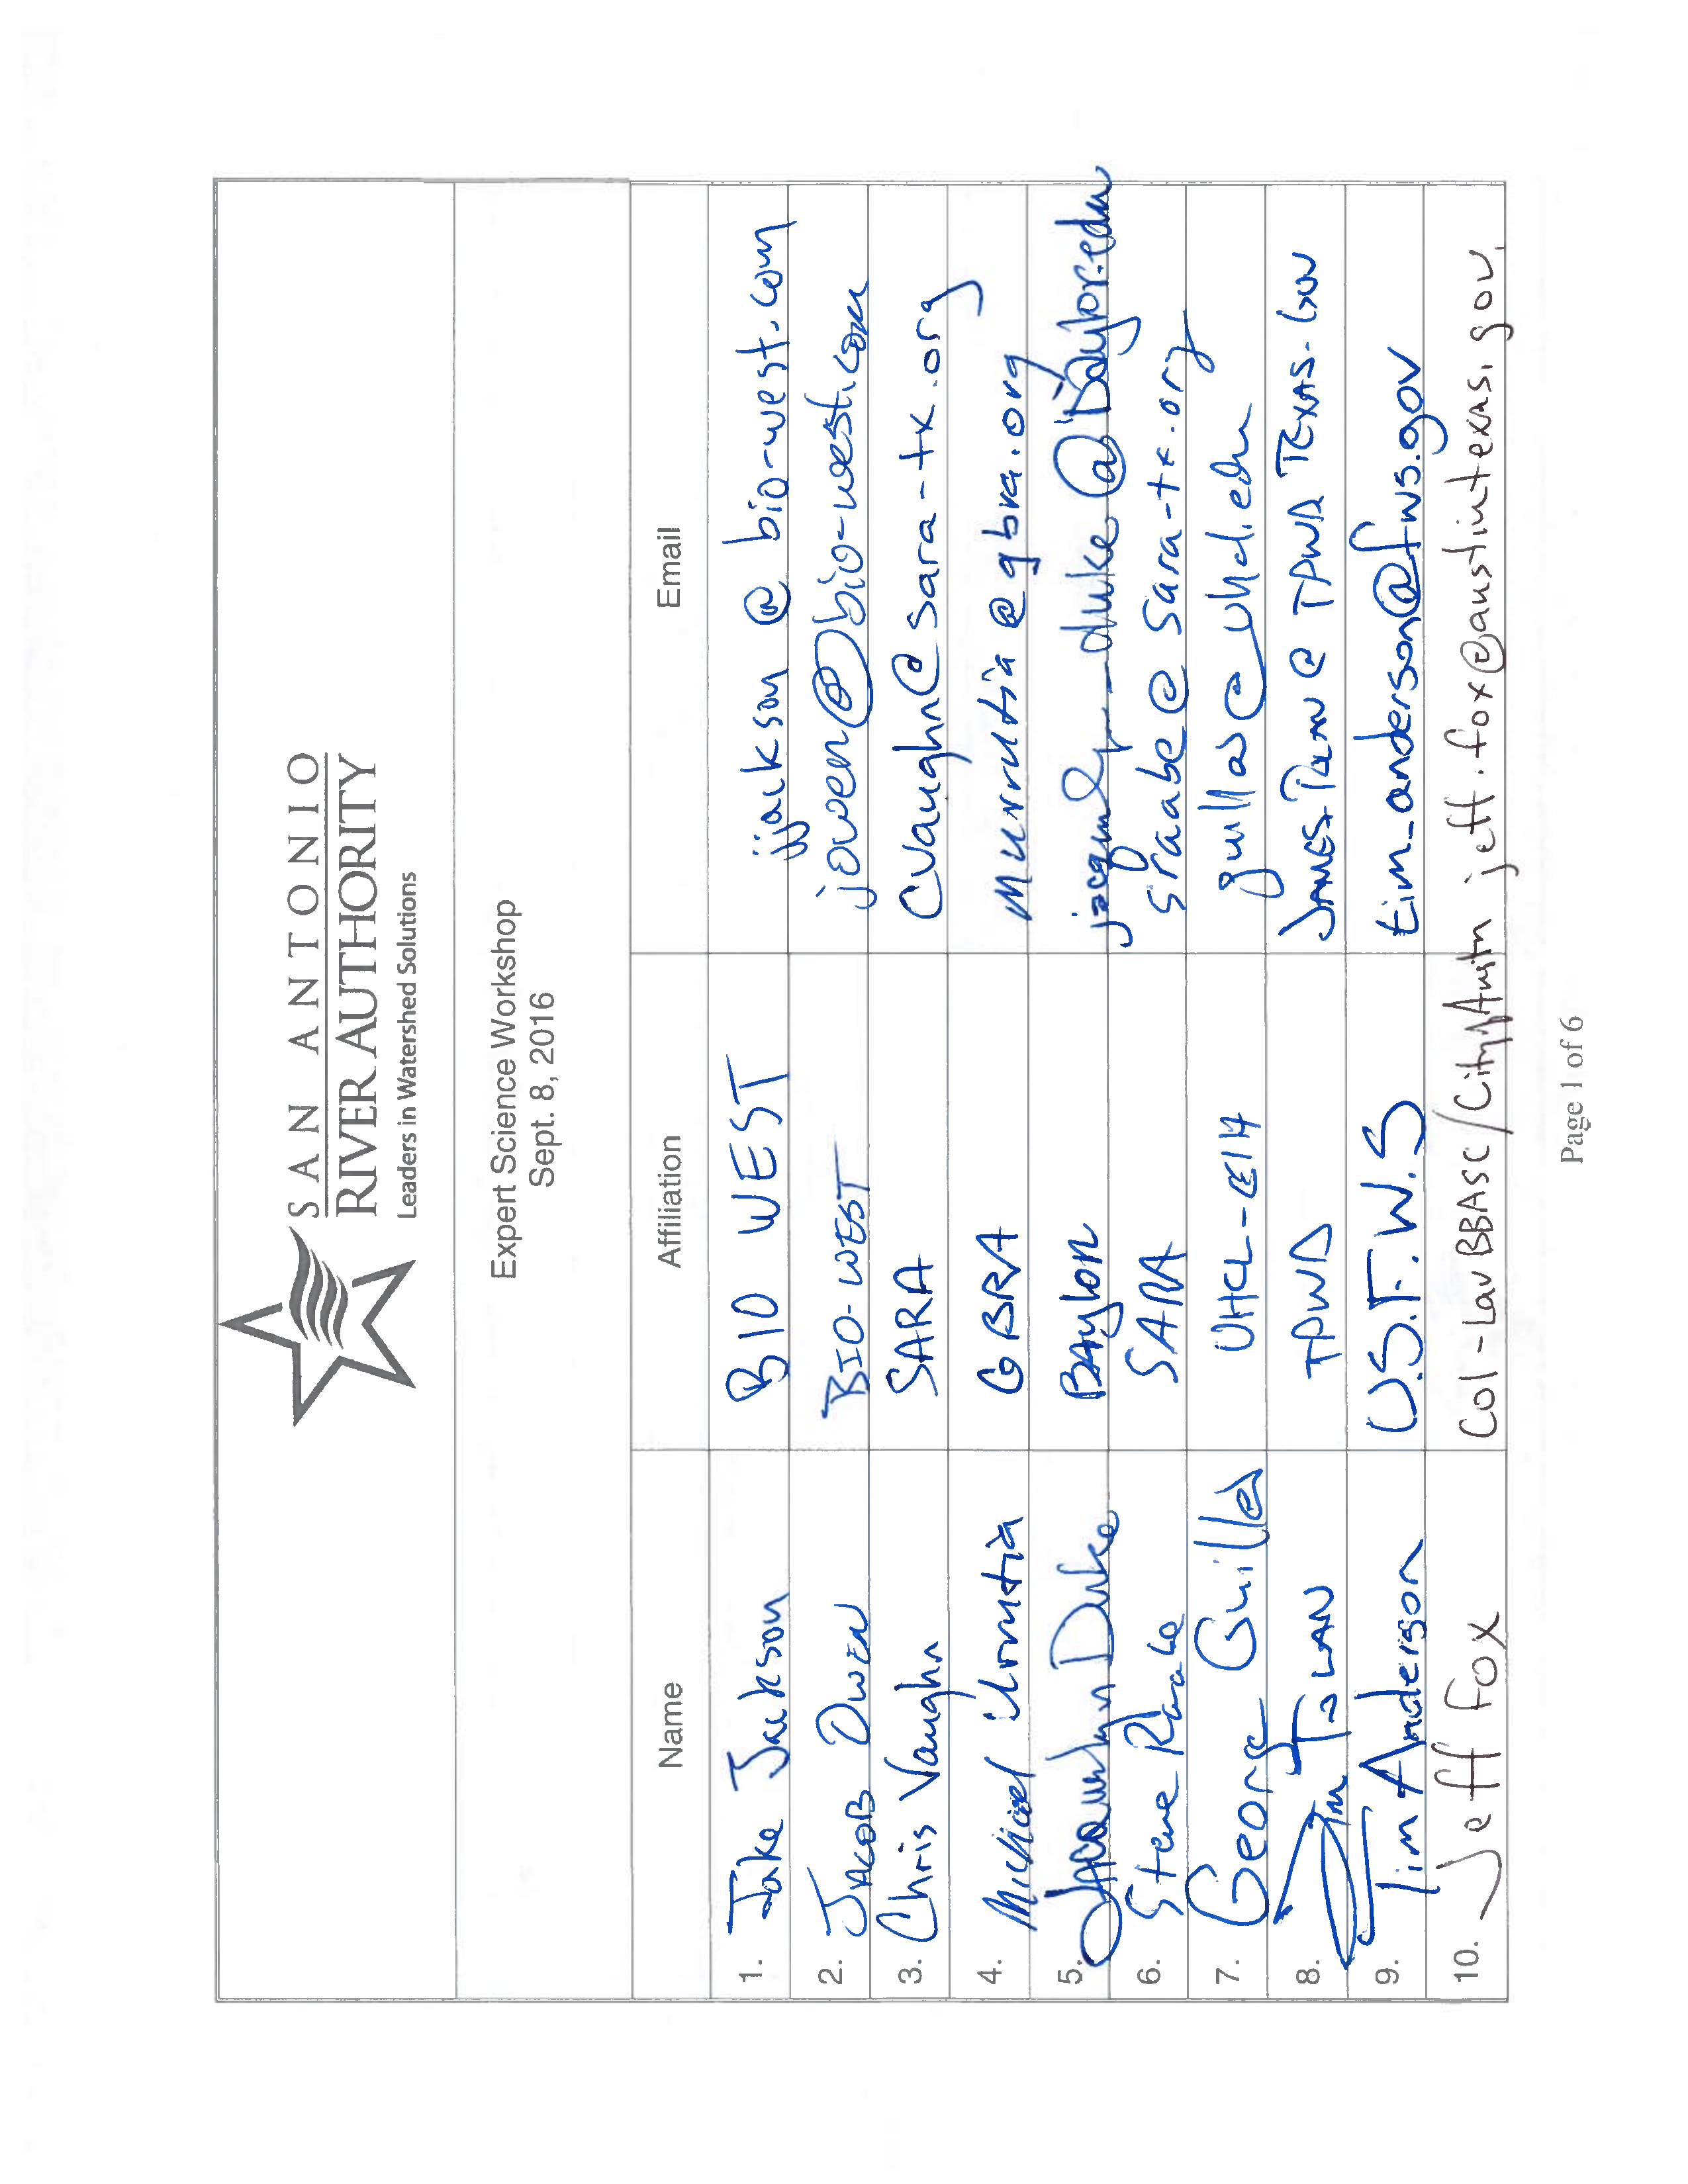 SAN ANTONIO
RIVER AUTHORITY
Leaders in Watershed Solutions
Expert Science Workshop
Sept. 8, 2016
Name Affiliation Email
1. Jake Jackson BIO WEST jjackson @ bio-west.com
2. JACOB OWEN BIO-WEST jowen@bio-west.com
3. Chris Vaughn SARA cvaughn@sara-tx.org
4. Michael Urrutia GBRA Murrutia @ gbra.org
5. Jacquelyn Duke BAylor @Baylor.edu
6. Steve Raabe SARA sraabe@sara-tx.org
7. George Guillen UHCL-EIH
8. Jim TOLAN TPWD JAMES.TOLAN @ TPWD.TEXAS.GOV
9. Tim Anderson U.S.F.W.S tim_anderson@fws.gov
10. Jeff Fox Col-Lav BBASC/City Austin jeff.fox@austintexas.gov
Page 1 of 6